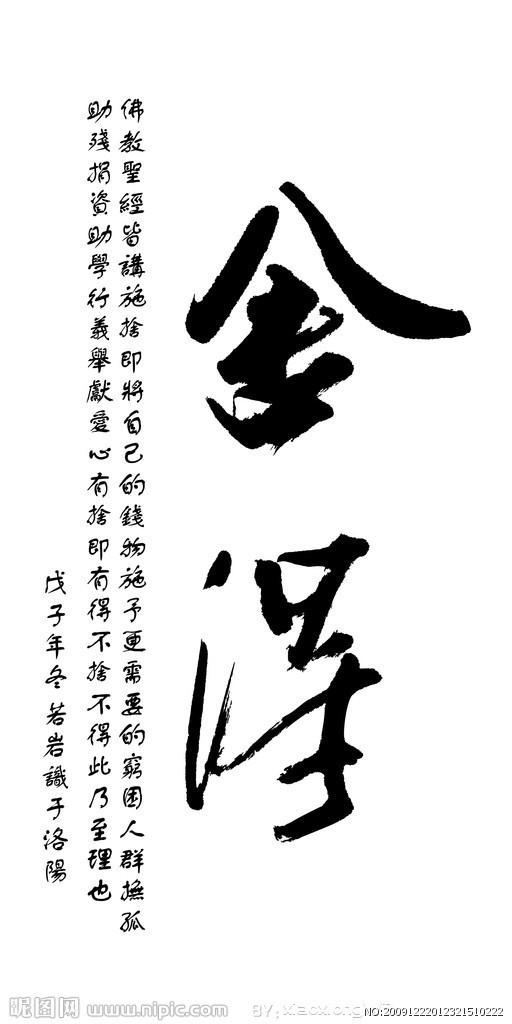 舍得
佛教聖經皆講施捨即將自己的錢物施予更需要的窮困人群撫孤
助殘捐資助學行義舉獻愛心有捨即有得不捨不得此乃至理也
戊子年冬若岩識于洛陽
昵图网 www.nipic.com
NO:20091222012321510222